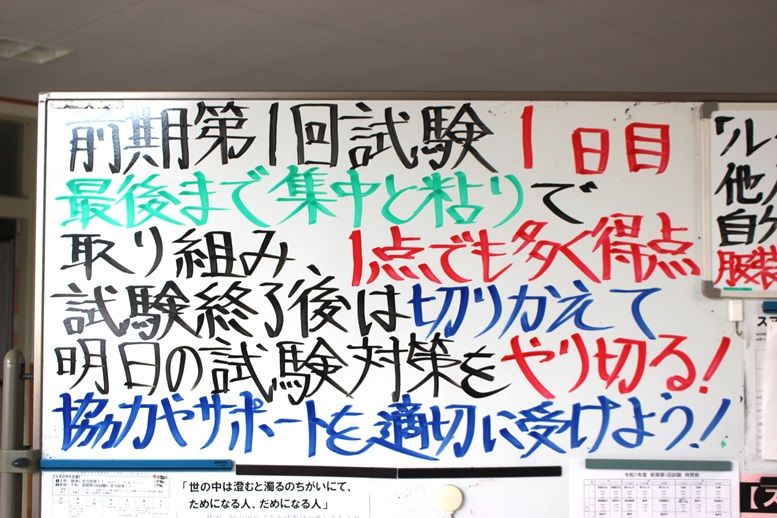 前期第1回試験 1日目
最後まで集中と粘りで
取り組み 1点でも多く得点
試験終了後は切りかえて
明日の試験対策をやり切る!
協力やサポートを適切に受けよう!
「世の中は澄むと濁るのちがいにて、
ためになる人、だめになる人」
令和7年度 前期第1回試験 時間割
「ル
他人
自分
服装